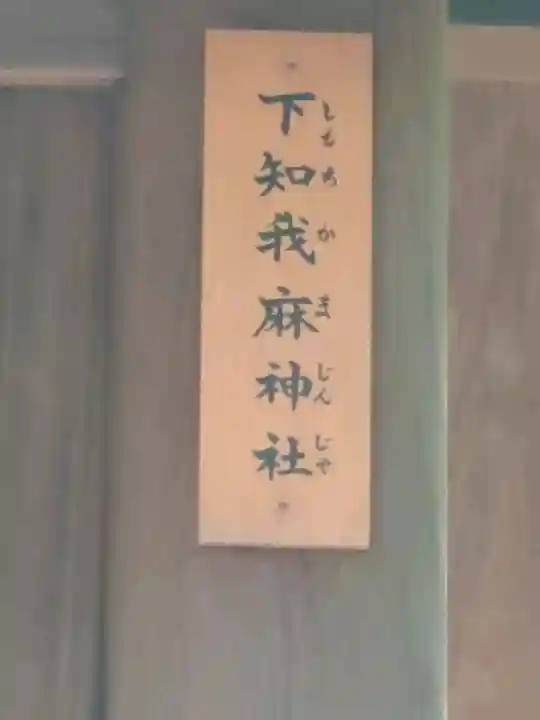 下知我麻神社
しもちかまじんじゃ